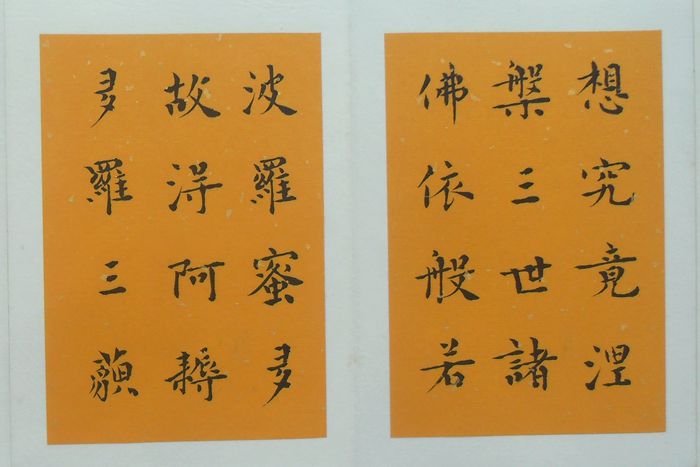 想究竟涅
槃三世諸
佛依般若
波羅蜜多
故得阿耨
多羅三藐